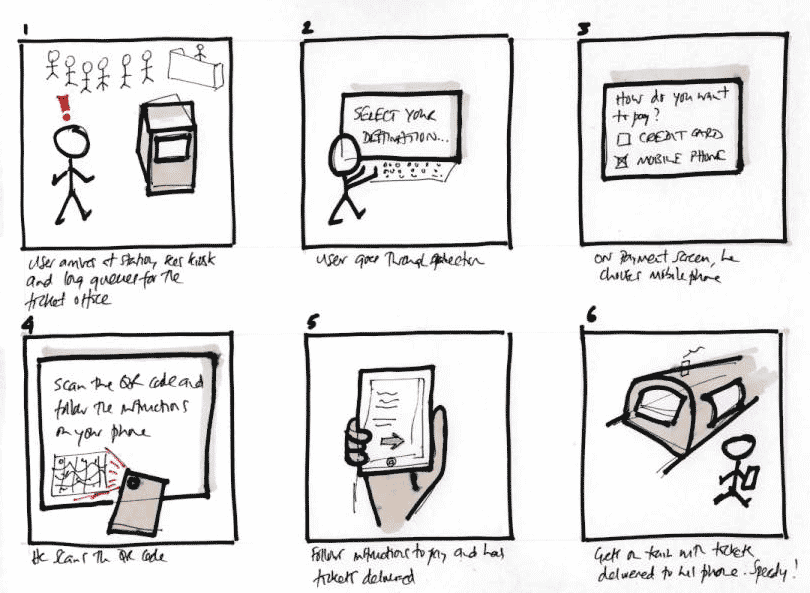 1
!
User arrives at station, sees kiosk
and long queues for the
ticket office
2
SELECT YOUR
DESTINATION...
User goes through selection
3
How do you want
to pay?
CREDIT CARD
MOBILE PHONE
On payment screen, he
chooses mobile phone
4
Scan the QR code and
follow the instructions
on your phone
He scans the QR code
5
Follows instructions to pay and has
tickets delivered
6
Gets on train with tickets
delivered to his phone. Speedy!